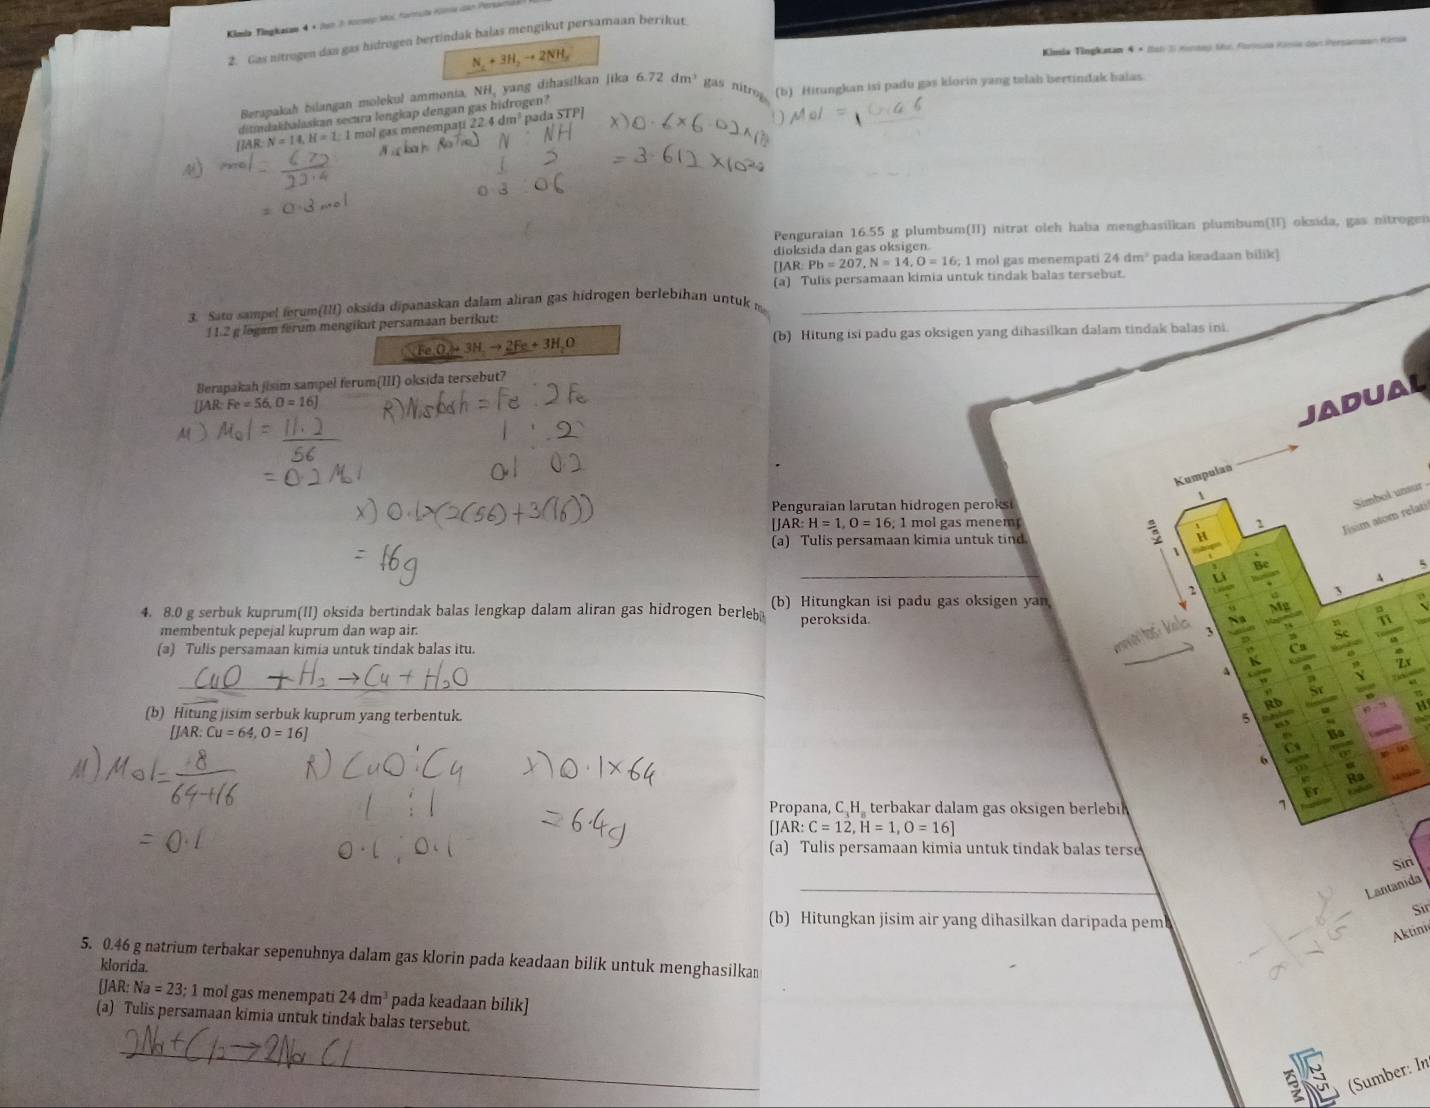 Kimia Tingkatan 4
2. Gas nitrogen dan gas hidrogen bertindak balas mengikut persamaan berikut.
N₂ + 3H₂ → 2NH₃
Berapakah bilangan molekul ammonia, NH₃ yang dihasilkan jika 6.72 dm³ gas nitrog
ditindakbalaskan secara lengkap dengan gas hidrogen?
[JAR: N = 14, H = 1; 1 mol gas menempati 22.4 dm³ pada STP]
M) mol = 6.72 / 22.4
= 0.3 mol
N : NH
1 2
0.3 : 0.6
X) 0.6 × 6.02 ×
= 3.612 × 10
3. Satu sampel ferum(III) oksida dipanaskan dalam aliran gas hidrogen berlebihan untuk m
11.2 g logam ferum mengikut persamaan berikut:
Fe₂O₃ + 3H₂ → 2Fe + 3H₂O
Berapakah jisim sampel ferum(III) oksida tersebut?
[JAR: Fe = 56, O = 16]
M) Mol = 11.2 / 56
= 0.2 Mol
R) Nisbah = Fe : 2 Fe
1 : 2
0.1 0.2
X) 0.1×(2(56)+3(16))
= 16g
4. 8.0 g serbuk kuprum(II) oksida bertindak balas lengkap dalam aliran gas hidrogen berlebi
membentuk pepejal kuprum dan wap air.
(a) Tulis persamaan kimia untuk tindak balas itu.
CuO + H₂ → Cu + H₂O
(b) Hitung jisim serbuk kuprum yang terbentuk.
[JAR: Cu = 64, O = 16]
M) Mol = 8 / 64+16
= 0.1
R) CuO : Cu
1 : 1
0.1 : 0.1
X) 0.1 × 64
= 6.4g
5. 0.46 g natrium terbakar sepenuhnya dalam gas klorin pada keadaan bilik untuk menghasilkan
klorida.
[JAR: Na = 23; 1 mol gas menempati 24 dm³ pada keadaan bilik]
(a) Tulis persamaan kimia untuk tindak balas tersebut.
2Na + Cl₂ → 2NaCl
Kimia Tingkatan 4
(b) Hitungkan isi padu gas klorin yang telah bertindak balas.
) Mol =
Penguraian 16.55 g plumbum(II) nitrat oleh haba menghasilkan plumbum(II) oksida, gas nitrogen
dioksida dan gas oksigen.
[JAR: Pb = 207, N = 14, O = 16; 1 mol gas menempati 24 dm³ pada keadaan bilik]
(a) Tulis persamaan kimia untuk tindak balas tersebut.
(b) Hitung isi padu gas oksigen yang dihasilkan dalam tindak balas ini.
Penguraian larutan hidrogen peroksi
[JAR: H = 1, O = 16; 1 mol gas menemp
(a) Tulis persamaan kimia untuk tind
(b) Hitungkan isi padu gas oksigen yan
peroksida.
Propana, C₃H₈ terbakar dalam gas oksigen berlebih
[JAR: C = 12, H = 1, O = 16]
(a) Tulis persamaan kimia untuk tindak balas terse
(b) Hitungkan jisim air yang dihasilkan daripada pemb
JADUAL
Kumpulan
Simbol unsur
Jisim atom relatif
Kala
1 2 3 4 5
1 H
2 Li Be
3 Na Mg
4 K Ca Sc Ti V
5 Rb Sr Y Zr
6 Cs Ba H
7 Fr Ra
Siri
Lantanida
Sir
Aktini
KPM
275
(Sumber: In